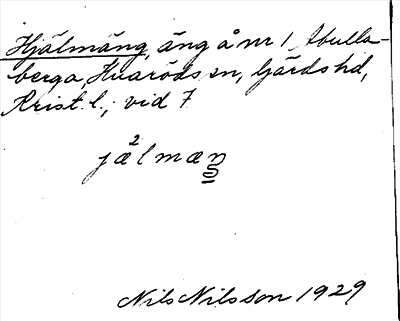 Hjälmäng, äng å nr 1 Abulla-
berga, Huaröds sn, Gärds hd,
Krist. l.; vid 7
Nils Nilsson 1929